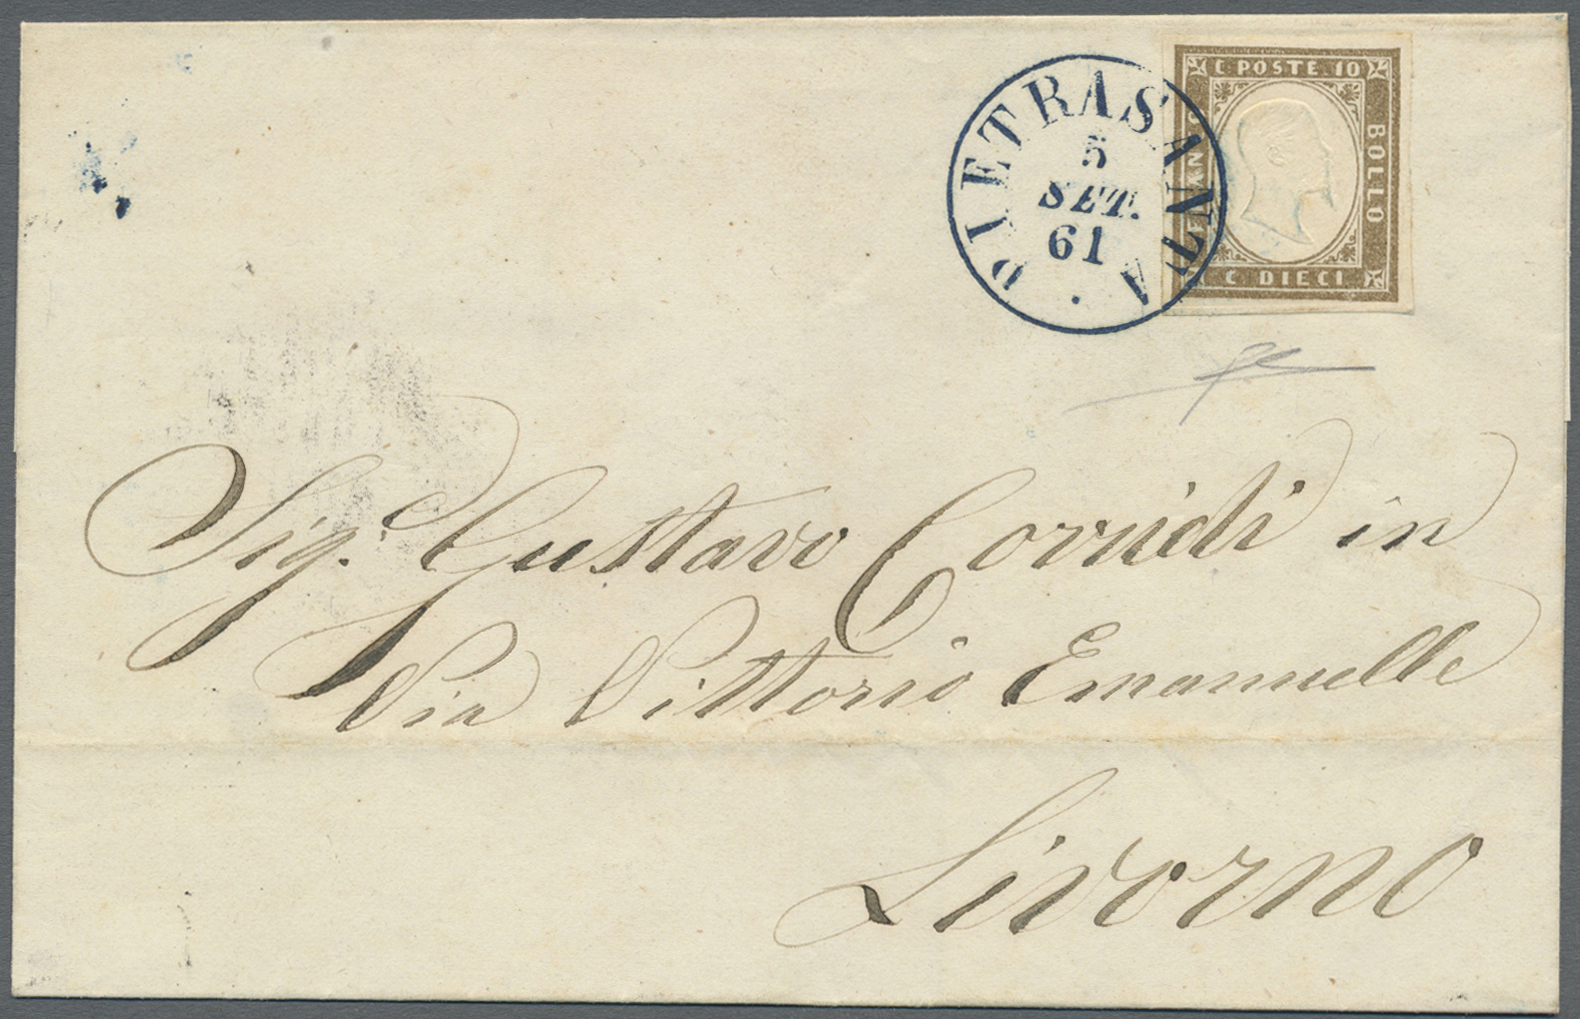 C. POSTE. 10
BOLLO
C. DIECI
PIETRASANTA
5
SET.
61
Sig. Gustavo Corridi in
Via Vittorio Emanuelle
Livorno